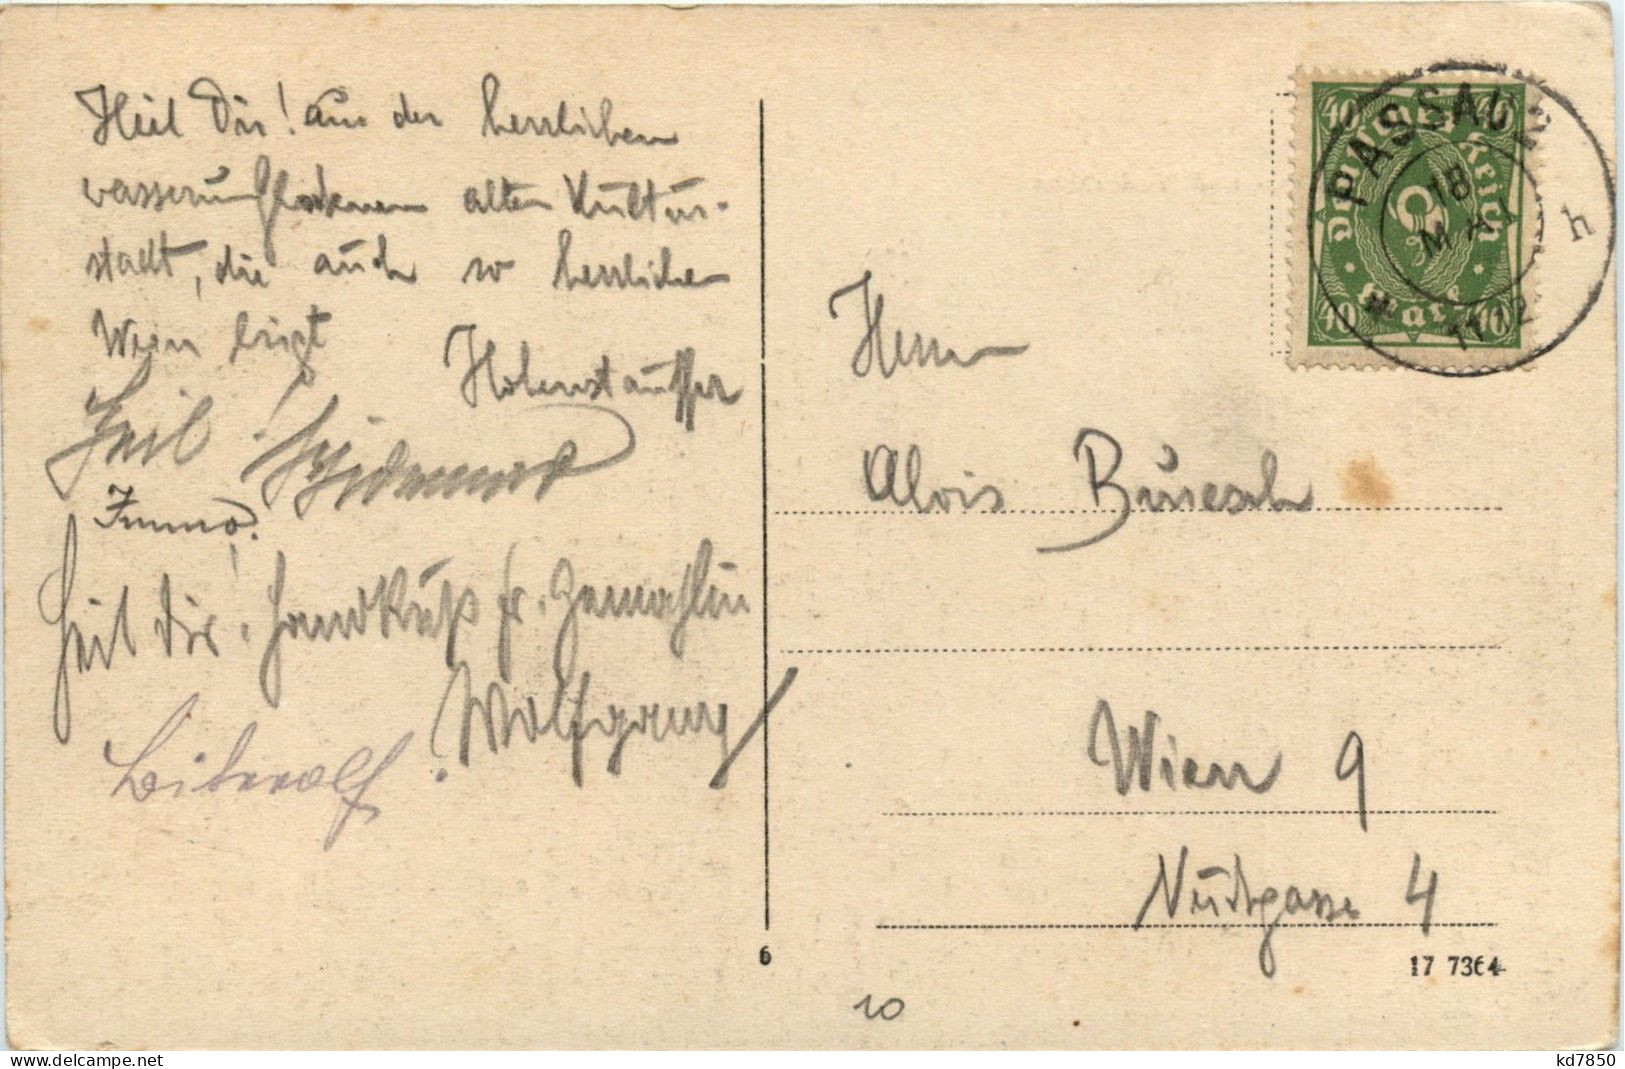 Heil Dir! aus der herrlichen
wasserumflossenen alten Kultur-
stadt, die auch so herrlichen
Wein birgt
Hohenstauffer
Heil!
Immo.
Heil Dir! Handkuß fr. Gemahlin
Wolfgang
Biterolf.
Herrn
Alois Buresch
Wien 9
Nußgasse 4
PASSAU 2
18
MAI
11-12
h
40 40
Deutsches Reich
Mark
40 40
6
17 7364
20
kd7850